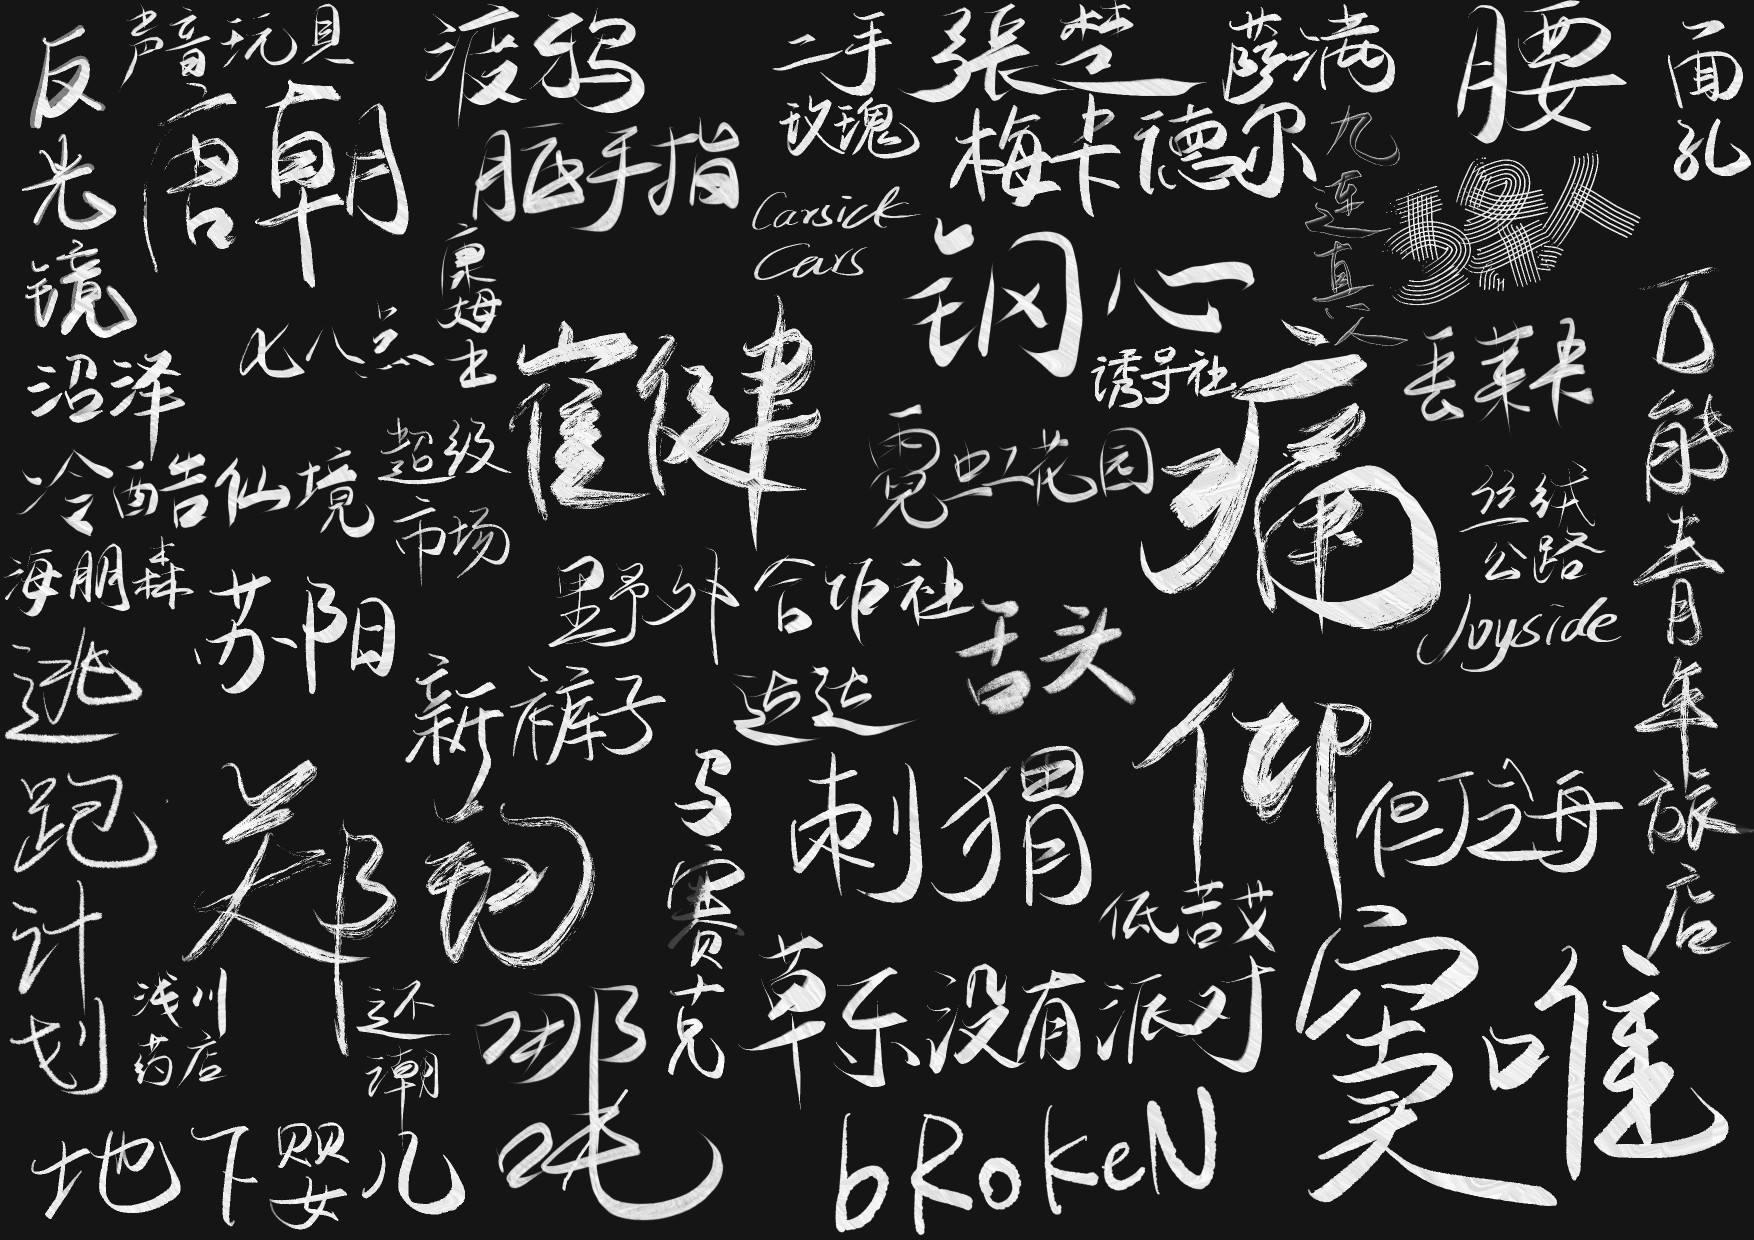 反光镜
声音玩具
唐朝
脏手指
二手玫瑰
張楚
萨满
梅卡德尔
腰
面孔
九连真人
Carsick
Cars
康姆士
七八点
钢心
诱导社
丢莱卡
沼泽
崔健
霓虹花园
痛仰
万能青年旅店
冷酷仙境
超级
市场
丝绒
公路
Joyside
海朋森
苏阳
野外合作社
舌头
逃跑计划
新裤子
达达
马赛克
刺猬
但丁之舟
郑钧
低苦艾
窦唯
浅川
药店
还潮
哪吒
草东没有派对
地下婴儿
bRokeN